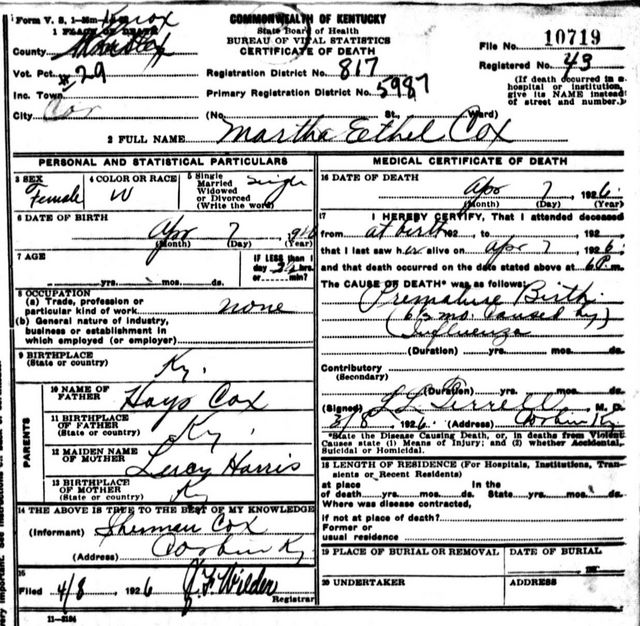 Form V. S. 1-
COMMONWEALTH OF KENTUCKY
State Board of Health
BUREAU OF VITAL STATISTICS
CERTIFICATE OF DEATH
1 PLACE OF DEATH
Knox
County
Vot. Pct. #29
Inc. Town
City
File No. 10719
Registered No. 43
(If death occurred in a hospital or institution, give its NAME instead of street and number.)
Registration District No. 817
Primary Registration District No. 5987
(No. St., Ward)
2 FULL NAME Martha Ethel Cox
PERSONAL AND STATISTICAL PARTICULARS
3 SEX Female
4 COLOR OR RACE W
5 Single Married Widowed or Divorced (Write the word) Single
6 DATE OF BIRTH
Apr 7
(Month) (Day) (Year)
7 AGE
yrs. mos. ds.
IF LESS than 1 day hrs. or min.?
8 OCCUPATION
(a) Trade, profession or
particular kind of work none
(b) General nature of industry,
business or establishment in
which employed (or employer)
9 BIRTHPLACE
(State or country) Ky.
PARENTS
10 NAME OF
FATHER Hays Cox
11 BIRTHPLACE
OF FATHER
(State or country) Ky.
12 MAIDEN NAME
OF MOTHER Harris
13 BIRTHPLACE
OF MOTHER
(State or country) Ky
14 THE ABOVE IS TRUE TO THE BEST OF MY KNOWLEDGE
(Informant) Sherman Cox
(Address) Corbin Ky
15
Filed 4/8 1926 Wilder
Registrar
11-3184
MEDICAL CERTIFICATE OF DEATH
16 DATE OF DEATH
Apr 7 1926
(Month) (Day) (Year)
17 I HEREBY CERTIFY, That I attended deceased
from at birth 192 , to 192
that I last saw her alive on Apr 7 1926
and that death occurred on the date stated above at 6 P m.
The CAUSE OF DEATH* was as follows:
Premature Birth
6½ mo. caused by
Influenza
(Duration) yrs. mos. ds.
Contributory
(Secondary)
(Duration) yrs. mos. ds.
(Signed) M. D.
3/8 1926 (Address) Corbin Ky
*State the Disease Causing Death, or, in deaths from Violent
Causes state (1) Means of Injury; and (2) whether Accidental,
Suicidal or Homicidal.
18 LENGTH OF RESIDENCE (For Hospitals, Institutions, Tran-
sients or Recent Residents)
at place In the
of death yrs. mos. ds. State yrs. mos. ds.
Where was disease contracted,
if not at place of death?
Former or
usual residence
19 PLACE OF BURIAL OR REMOVAL
DATE OF BURIAL
192
20 UNDERTAKER
ADDRESS